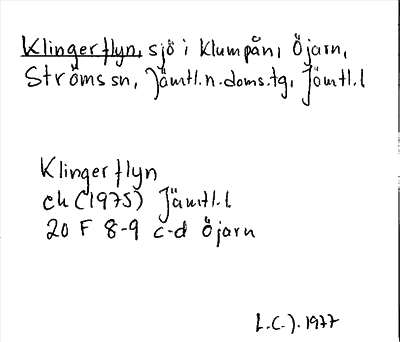 Klingerflyn, sjö i Klumpån, Öjarn,
Ströms sn, Jämtl.n.doms.tg, Jämtl.l
Klingerflyn
ek (1975) Jämtl.l
20 F 8-9 c-d Öjarn
L.C.J. 1977